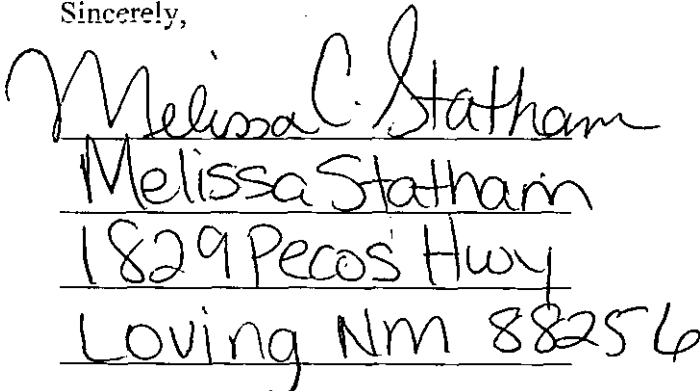 Sincerely,
Melissa C. Statham
Melissa Statham
1829 Pecos Hwy
Loving NM 88256